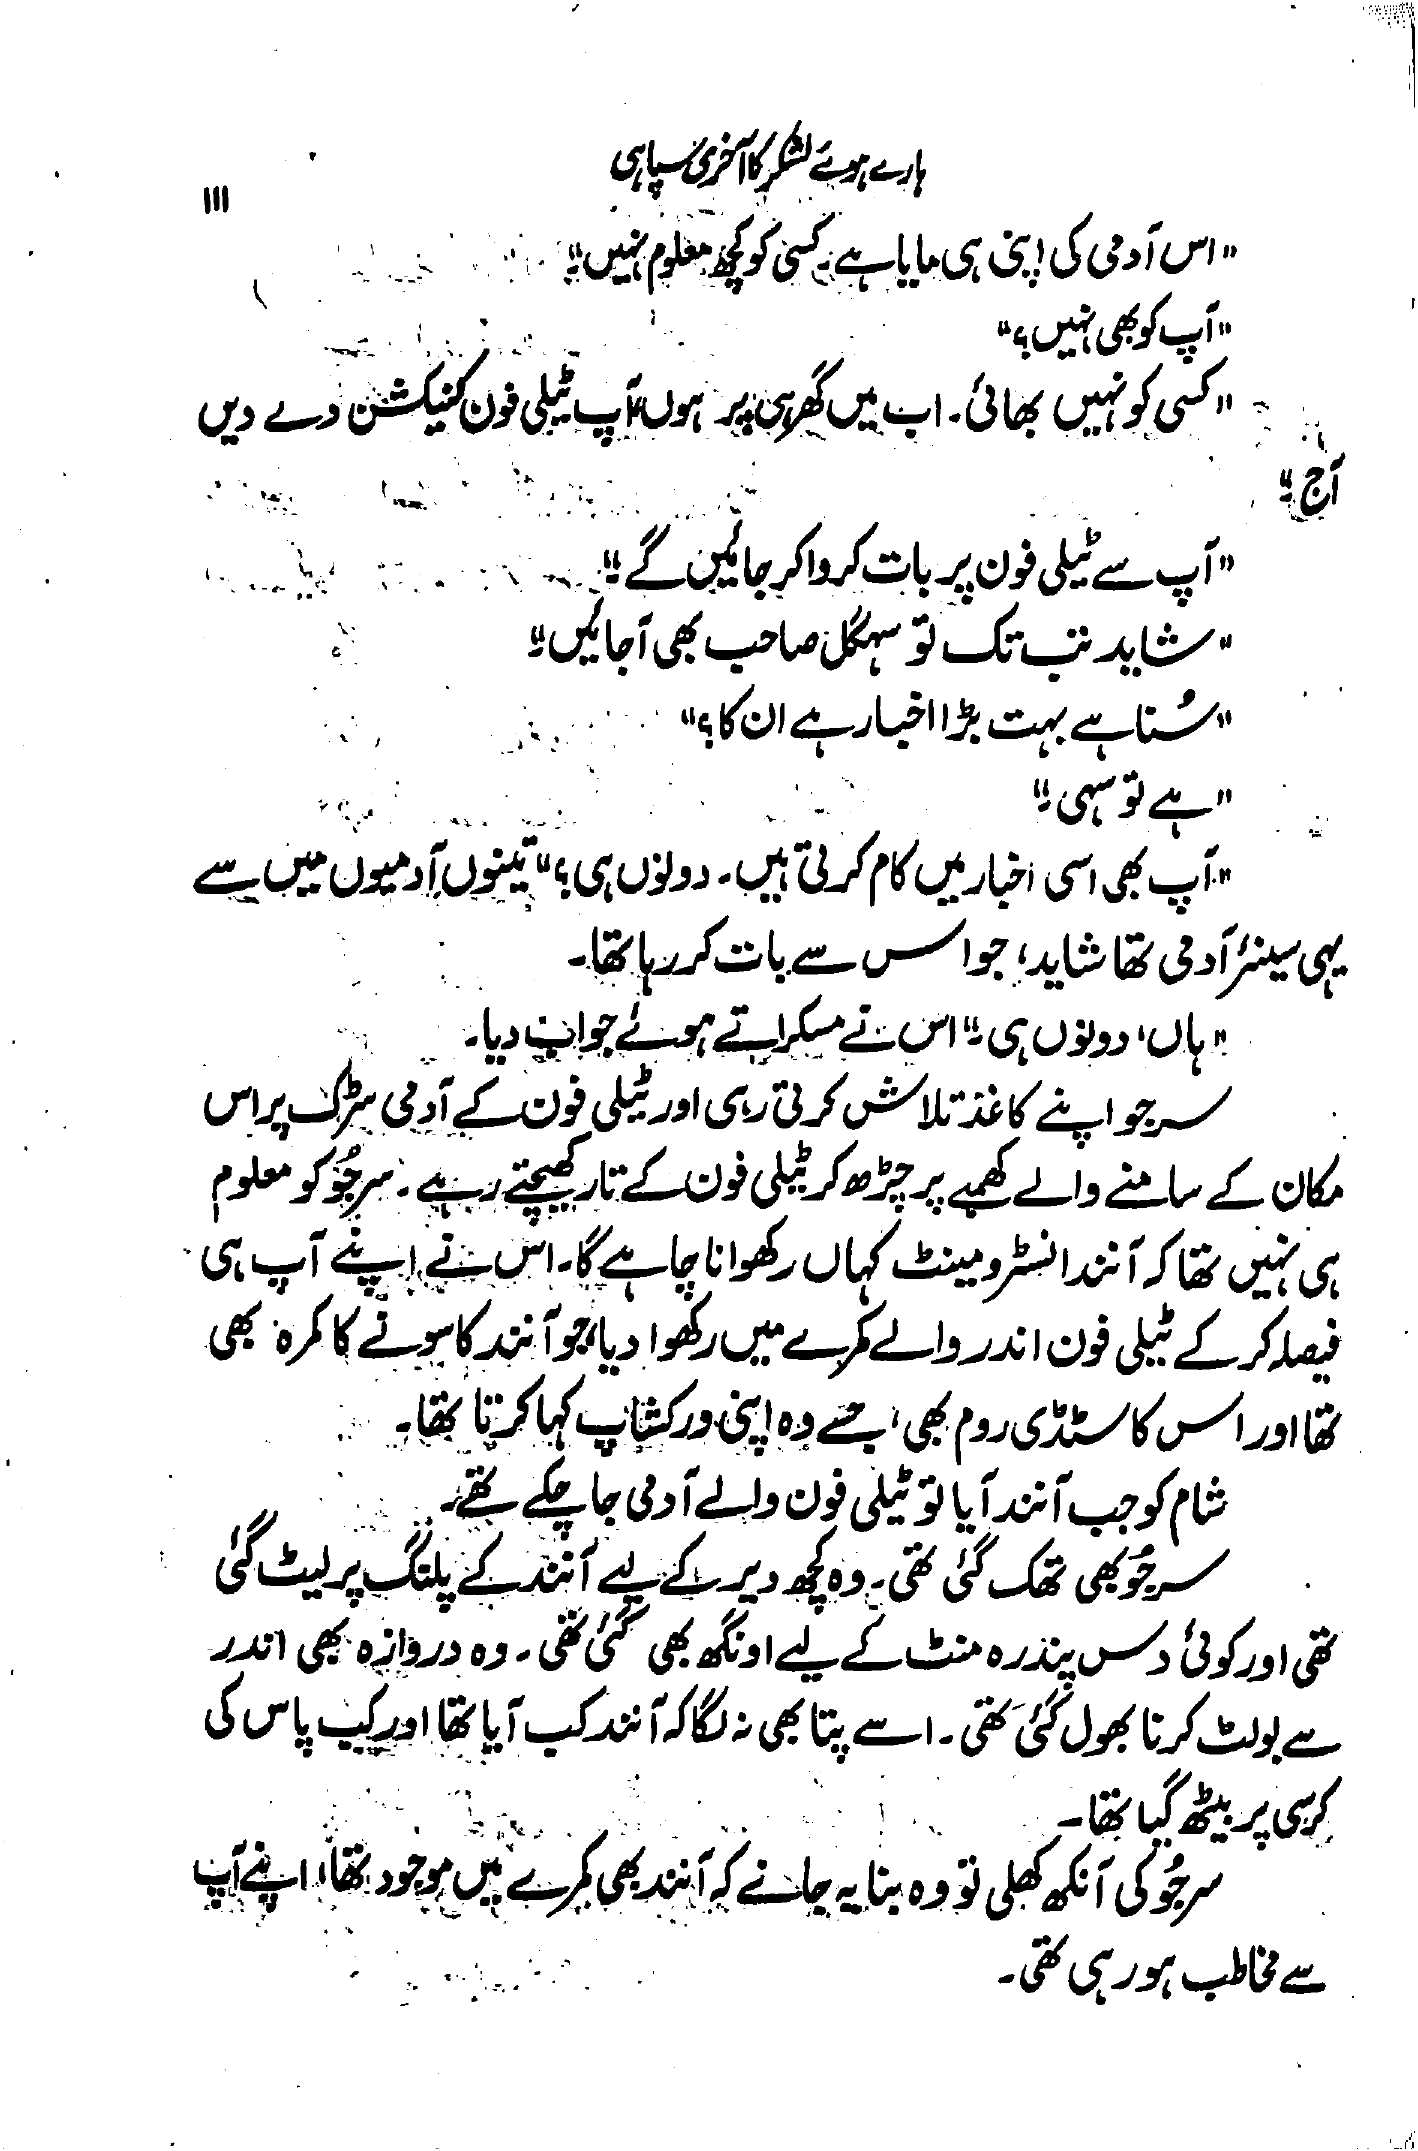 ہارے ہوئے لشکر کا آخری سپاہی
۱۱۱
"اس آدمی کی اپنی ہی مایا ہے۔ کسی کو کچھ معلوم نہیں۔"
"آپ کو بھی نہیں؟"
"کسی کو نہیں بھائی۔ اب میں گھر ہی پر ہوں، آپ ٹیلی فون کنیکشن دے دیں
آج۔"
"آپ سے ٹیلی فون پر بات کروا کر جائیں گے۔"
"شاید تب تک تو سہگل صاحب بھی آجائیں۔"
"سُنا ہے بہت بڑا اخبار ہے ان کا؟"
"ہے تو سہی۔"
"آپ بھی اسی اخبار میں کام کرتی ہیں۔ دونوں ہی؟" تینوں آدمیوں میں سے
یہی سینئر آدمی تھا شاید، جو اس سے بات کر رہا تھا۔
"ہاں، دونوں ہی۔" اس نے مسکراتے ہوئے جواب دیا۔
سرجو اپنے کاغذ تلاش کرتی رہی اور ٹیلی فون کے آدمی سڑک پر اس
مکان کے سامنے والے کھمبے پر چڑھ کر ٹیلی فون کے تار کھینچتے رہے۔ سرجُو کو معلوم
ہی نہیں تھا کہ آنند انسٹرومینٹ کہاں رکھوانا چاہے گا۔ اس نے اپنے آپ ہی
فیصلہ کر کے ٹیلی فون اندر والے کمرے میں رکھوا دیا، جو آنند کا سونے کا کمرہ بھی
تھا اور اس کا سٹڈی روم بھی، جسے وہ اپنی ورکشاپ کہا کرتا تھا۔
شام کو جب آنند آیا تو ٹیلی فون والے آدمی جا چکے تھے۔
سرجُو بھی تھک گئی تھی۔ وہ کچھ دیر کے لیے آنند کے پلنگ پر لیٹ گئی
تھی اور کوئی دس پندرہ منٹ کے لیے اونگھ بھی گئی تھی۔ وہ دروازہ بھی اندر
سے بولٹ کرنا بھول گئی تھی۔ اسے پتا بھی نہ لگا کہ آنند کب آیا تھا اور کب پاس کی
کرسی پر بیٹھ گیا تھا۔
سرجُو کی آنکھ کھلی تو وہ بنا یہ جانے کہ آنند بھی کمرے میں موجود تھا، اپنے آپ
سے مخاطب ہو رہی تھی۔